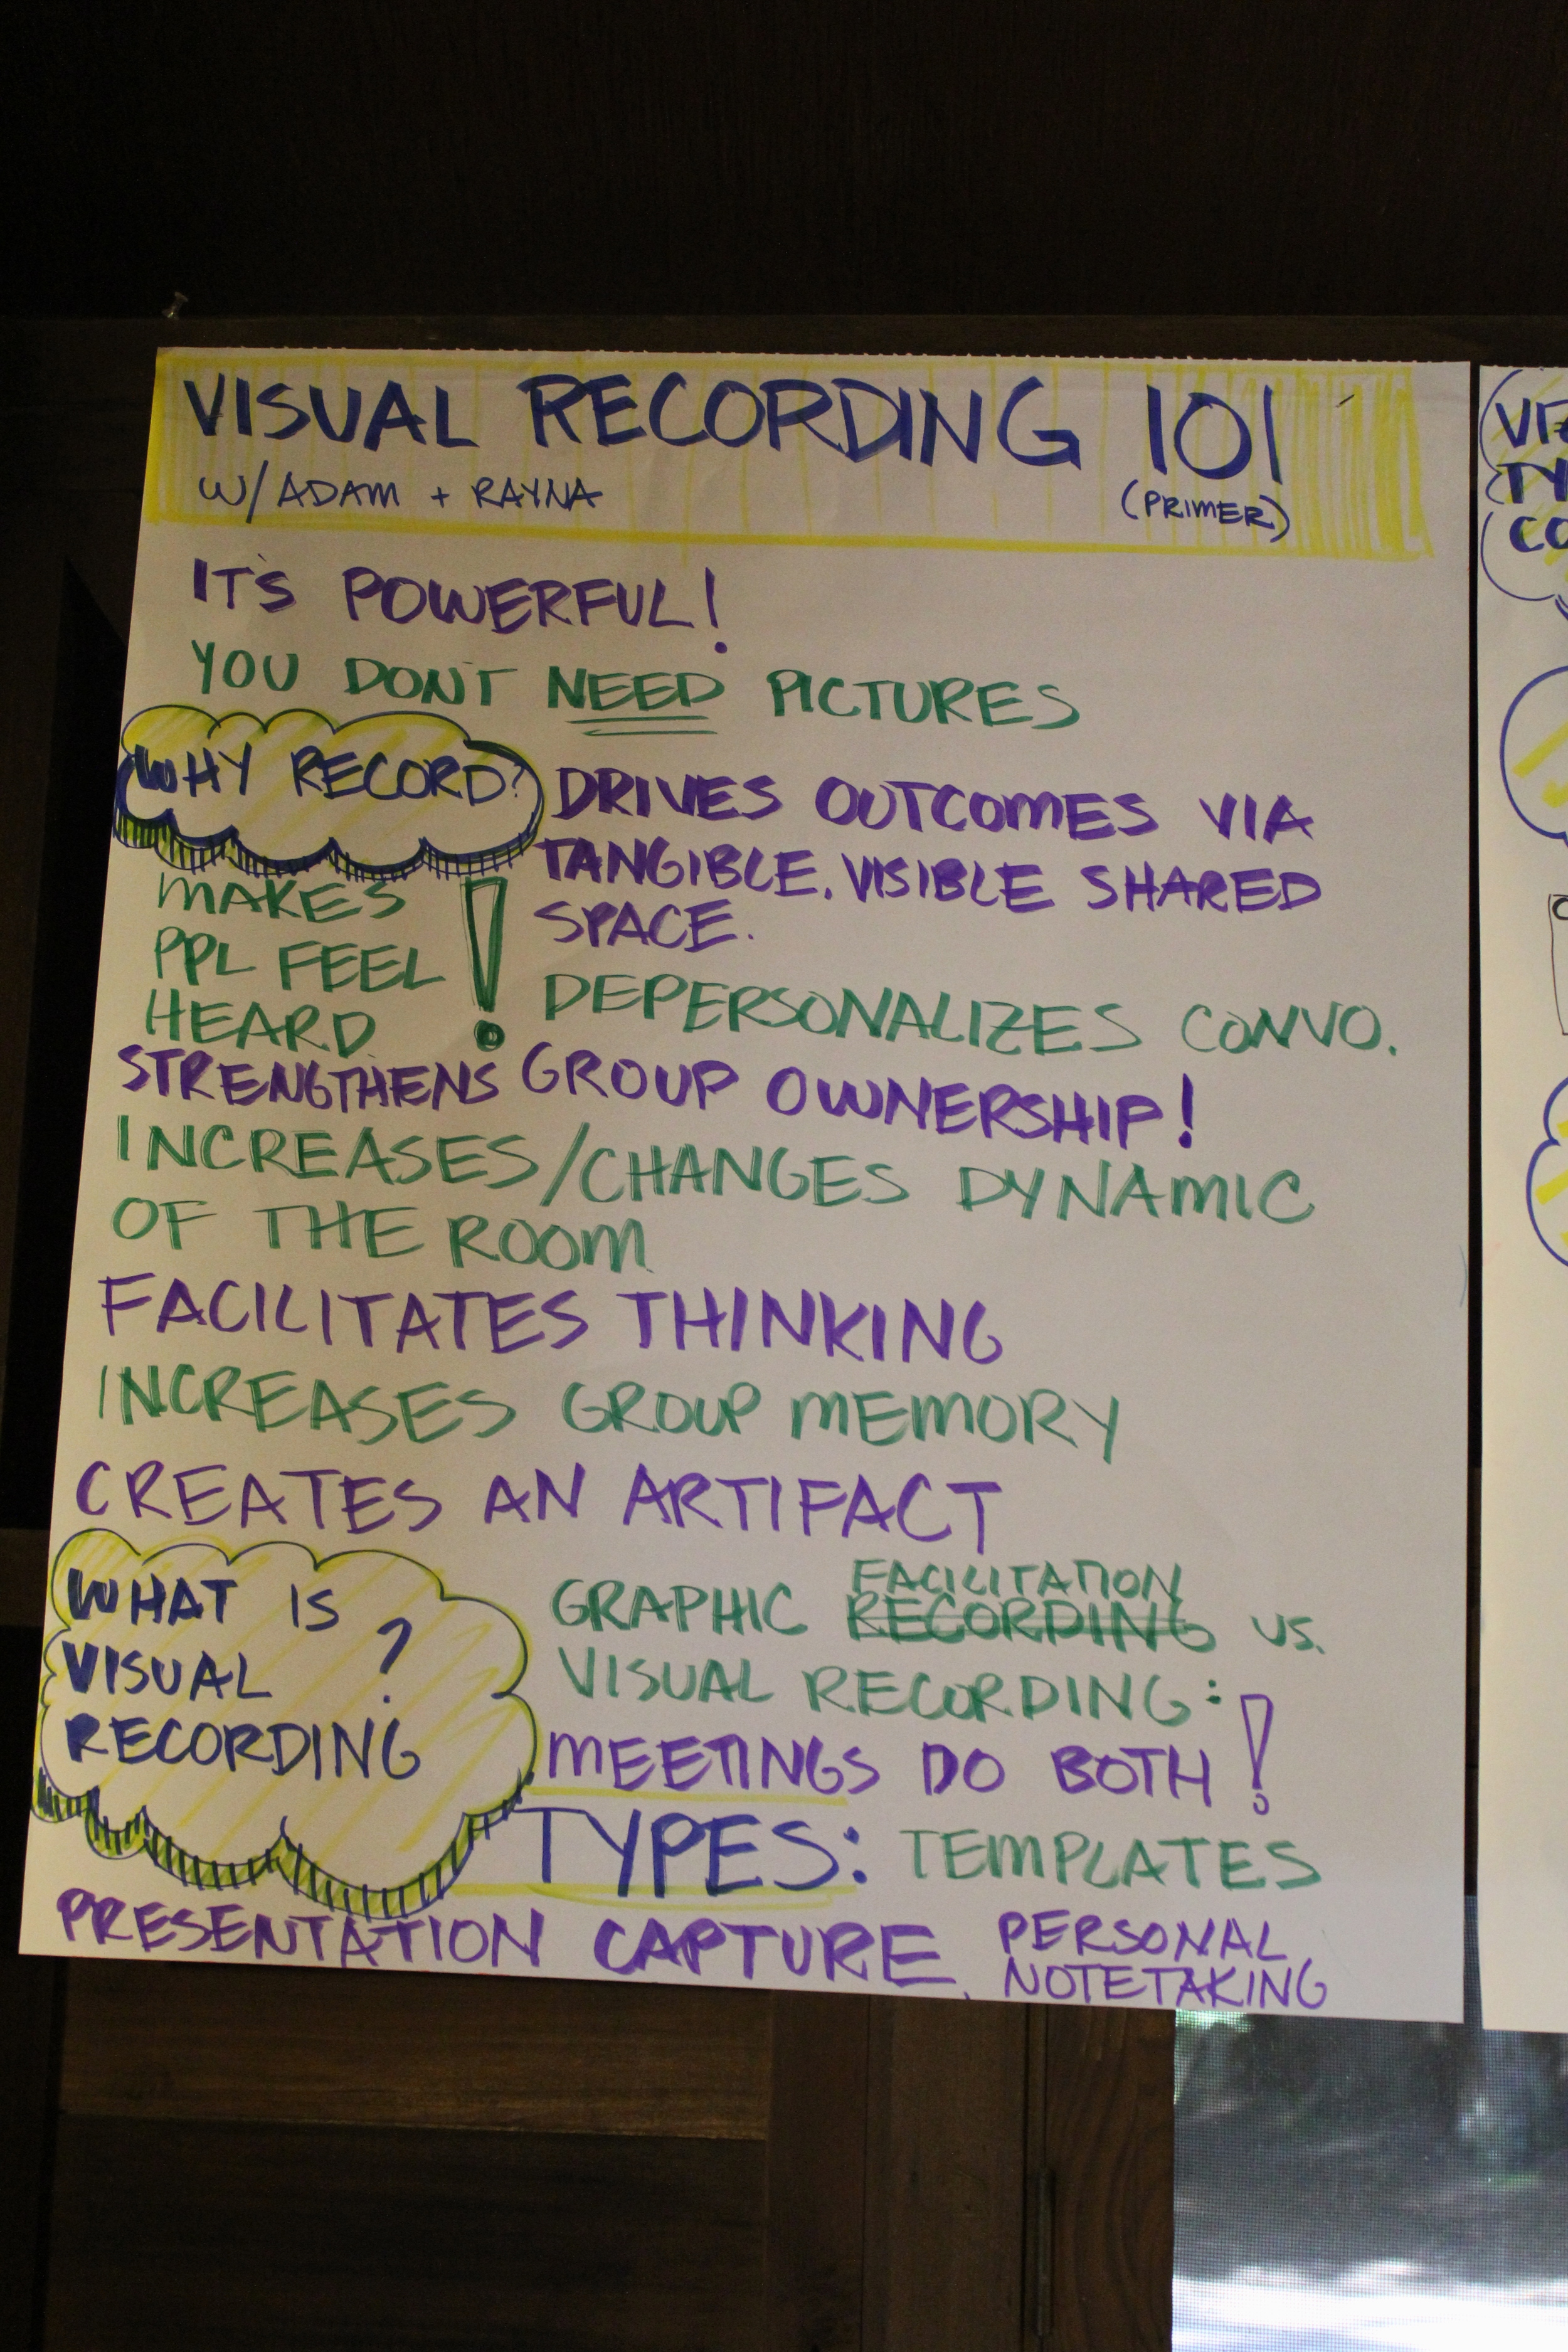 VISUAL RECORDING 101
W/ ADAM + RAYNA
(PRIMER)
IT'S POWERFUL!
YOU DON'T NEED PICTURES
WHY RECORD?
DRIVES OUTCOMES VIA
TANGIBLE, VISIBLE SHARED
SPACE.
MAKES
PPL FEEL
HEARD
!
DEPERSONALIZES CONVO.
STRENGTHENS GROUP OWNERSHIP!
INCREASES/CHANGES DYNAMIC
OF THE ROOM
FACILITATES THINKING
INCREASES GROUP MEMORY
CREATES AN ARTIFACT
WHAT IS
VISUAL ?
RECORDING
FACILITATION
GRAPHIC RECORDING VS.
VISUAL RECORDING:
MEETINGS DO BOTH!
TYPES: TEMPLATES
PRESENTATION CAPTURE, PERSONAL
NOTETAKING
TY
CO